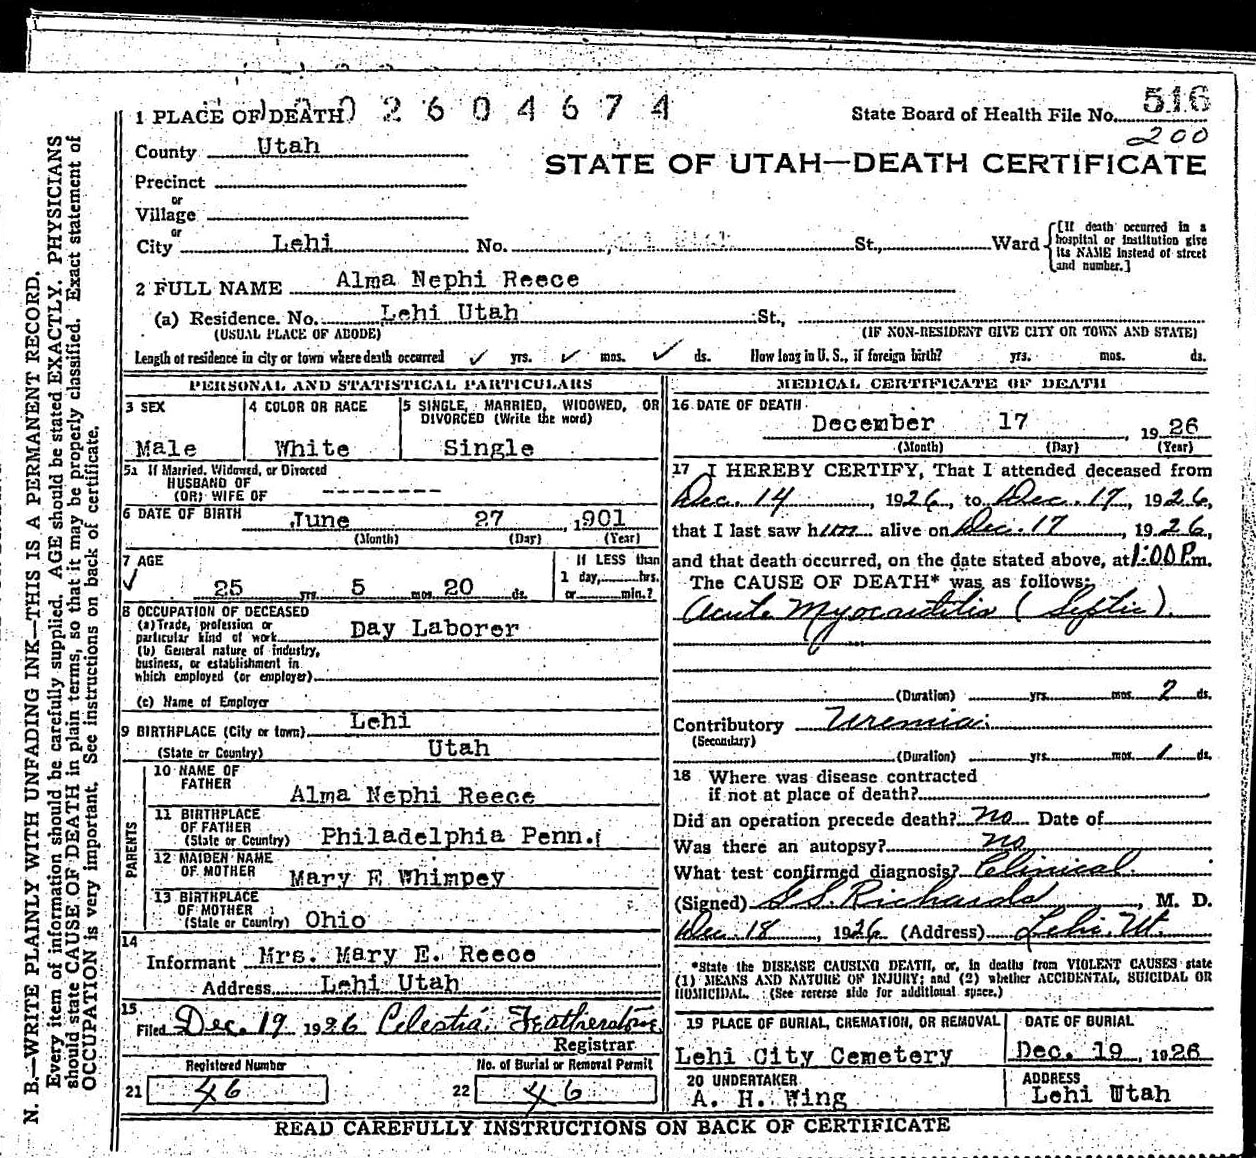 1 PLACE OF DEATH 02604674
State Board of Health File No. 516
200
County Utah
STATE OF UTAH—DEATH CERTIFICATE
Precinct
or
Village
or
City Lehi No. St., Ward [If death occurred in a hospital or institution give its NAME instead of street and number.]
2 FULL NAME Alma Nephi Reece
(a) Residence. No. Lehi Utah St.,
(USUAL PLACE OF ABODE) (IF NON-RESIDENT GIVE CITY OR TOWN AND STATE)
Length of residence in city or town where death occurred ✓ yrs. ✓ mos. ✓ ds. How long in U. S., if foreign birth? yrs. mos. ds.
PERSONAL AND STATISTICAL PARTICULARS
3 SEX 4 COLOR OR RACE 5 SINGLE, MARRIED, WIDOWED, OR
DIVORCED (Write the word)
Male White Single
5a If Married, Widowed, or Divorced
HUSBAND OF
(OR) WIFE OF ---------
6 DATE OF BIRTH June 27, 1901
(Month) (Day) (Year)
7 AGE If LESS than
✓ 1 day, hrs.
25 yrs. 5 mos. 20 ds. or min.?
8 OCCUPATION OF DECEASED
(a) Trade, profession or
particular kind of work Day Laborer
(b) General nature of industry,
business, or establishment in
which employed (or employer)
(c) Name of Employer
9 BIRTHPLACE (City or town) Lehi
(State or Country) Utah
PARENTS
10 NAME OF
FATHER Alma Nephi Reece
11 BIRTHPLACE
OF FATHER
(State or Country) Philadelphia Penn.
12 MAIDEN NAME
OF MOTHER Mary E Whimpey
13 BIRTHPLACE
OF MOTHER
(State or Country) Ohio
14
Informant Mrs. Mary E. Reece
Address Lehi Utah
15
Filed Dec. 19 1926 Celestia Featherstone
Registrar
Registered Number No. of Burial or Removal Permit
21 46 22 46
MEDICAL CERTIFICATE OF DEATH
16 DATE OF DEATH
December 17, 1926
(Month) (Day) (Year)
17 I HEREBY CERTIFY, That I attended deceased from
Dec. 14, 1926, to Dec. 17, 1926,
that I last saw him alive on Dec. 17, 1926,
and that death occurred, on the date stated above, at 1:00 P.m.
The CAUSE OF DEATH* was as follows:
Acute Myocarditis (Septic).
(Duration) yrs. mos. 2 ds.
Contributory Uremia.
(Secondary)
(Duration) yrs. mos. 1 ds.
18 Where was disease contracted
if not at place of death?
Did an operation precede death? no Date of
Was there an autopsy? no
What test confirmed diagnosis? Clinical
(Signed) G S. Richards, M. D.
Dec. 18, 1926 (Address) Lehi. Ut.
*State the DISEASE CAUSING DEATH, or, in deaths from VIOLENT CAUSES state
(1) MEANS AND NATURE OF INJURY; and (2) whether ACCIDENTAL, SUICIDAL OR
HOMICIDAL. (See reverse side for additional space.)
19 PLACE OF BURIAL, CREMATION, OR REMOVAL DATE OF BURIAL
Lehi City Cemetery Dec. 19, 1926
20 UNDERTAKER ADDRESS
A. H. Wing Lehi Utah
READ CAREFULLY INSTRUCTIONS ON BACK OF CERTIFICATE
N. B.—WRITE PLAINLY WITH UNFADING INK—THIS IS A PERMANENT RECORD.
Every item of information should be carefully supplied. AGE should be stated EXACTLY. PHYSICIANS
should state CAUSE OF DEATH in plain terms, so that it may be properly classified. Exact statement of
OCCUPATION is very important. See instructions on back of certificate.